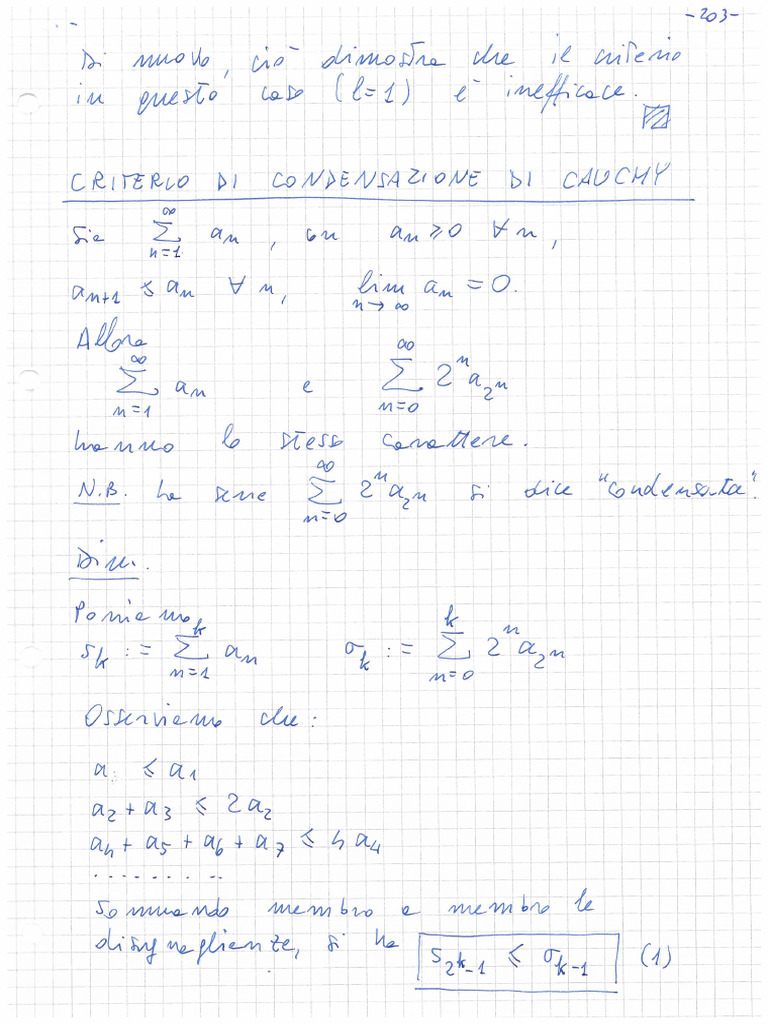 -203-
Di nuovo, ciò dimostra che il criterio
in questo caso (l=1) è inefficace.
CRITERIO DI CONDENSAZIONE DI CAUCHY
Sia ∑_{n=1}^{∞} a_n , con a_n ≥ 0 ∀ n,
a_{n+1} ≤ a_n ∀ n, lim_{n→∞} a_n = 0.
Allora
∑_{n=1}^{∞} a_n e ∑_{n=0}^{∞} 2^n a_{2^n}
hanno lo stesso carattere.
N.B. La serie ∑_{n=0}^{∞} 2^n a_{2^n} si dice "condensata".
Dim.
Poniamo
s_k := ∑_{n=1}^{k} a_n σ_k := ∑_{n=0}^{k} 2^n a_{2^n}
Osserviamo che:
a_1 ≤ a_1
a_2 + a_3 ≤ 2a_2
a_4 + a_5 + a_6 + a_7 ≤ 4 a_4
.........
Sommando membro a membro le
disuguaglianze, si ha s_{2^k-1} ≤ σ_{k-1} (1)